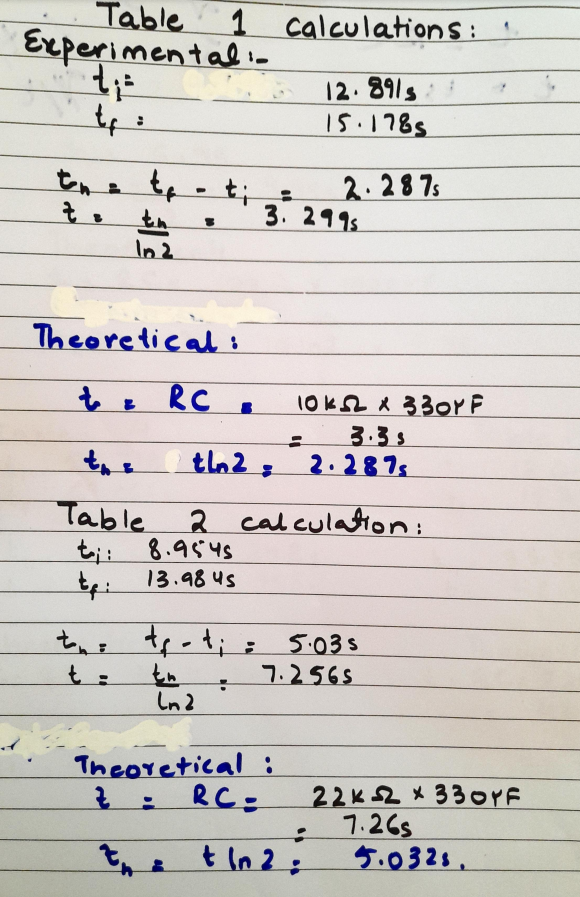 Table 1 calculations:
Experimental:-
ti = 12.891s
tf = 15.178s
th = tf - ti = 2.287s
t = th/ln2 = 3.299s
Theoretical:
t = RC = 10KΩ x 330μF
= 3.3s
th = tln2 = 2.287s
Table 2 calculation:
ti: 8.954s
tf: 13.984s
th = tf - ti = 5.03s
t = th/ln2 = 7.256s
Theoretical:
t = RC = 22KΩ x 330μF
= 7.26s
th = t ln2 = 5.032s.